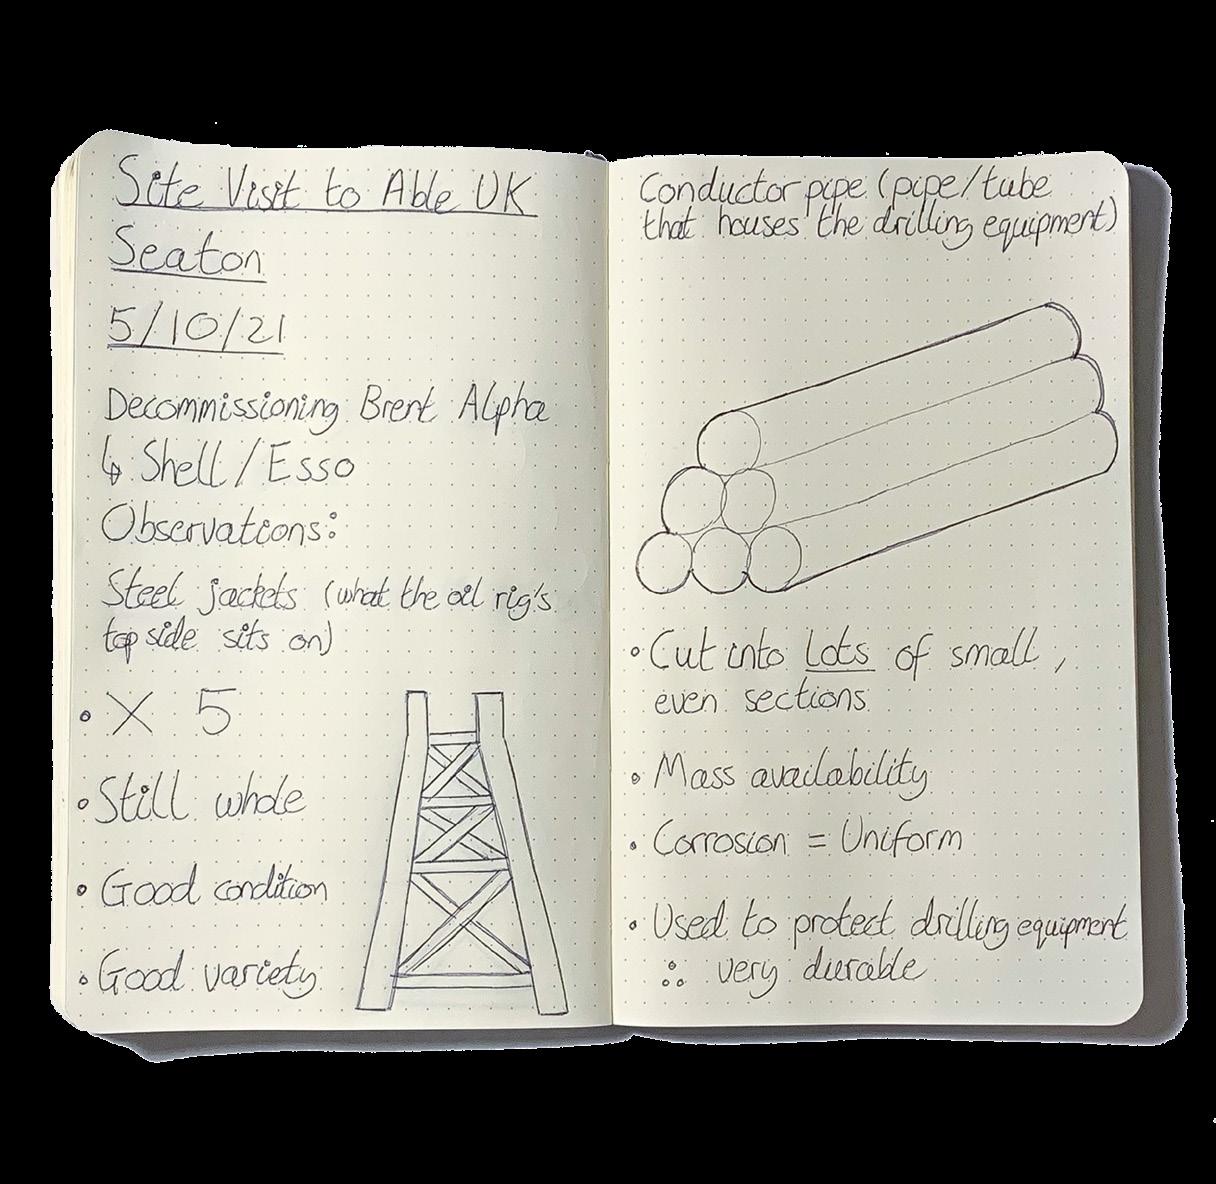 Site Visit to Able UK
Seaton
5/10/21
Decommissioning Brent Alpha
↳ Shell/Esso
Observations:
Steel jackets (what the oil rig's
top side sits on)
• X 5
• Still whole
• Good condition
• Good variety
Conductor pipe (pipe/tube
that houses the drilling equipment)
• Cut into Lots of small,
even sections
• Mass availability
• Corrosion = Uniform
• Used to protect drilling equipment
∴ very durable